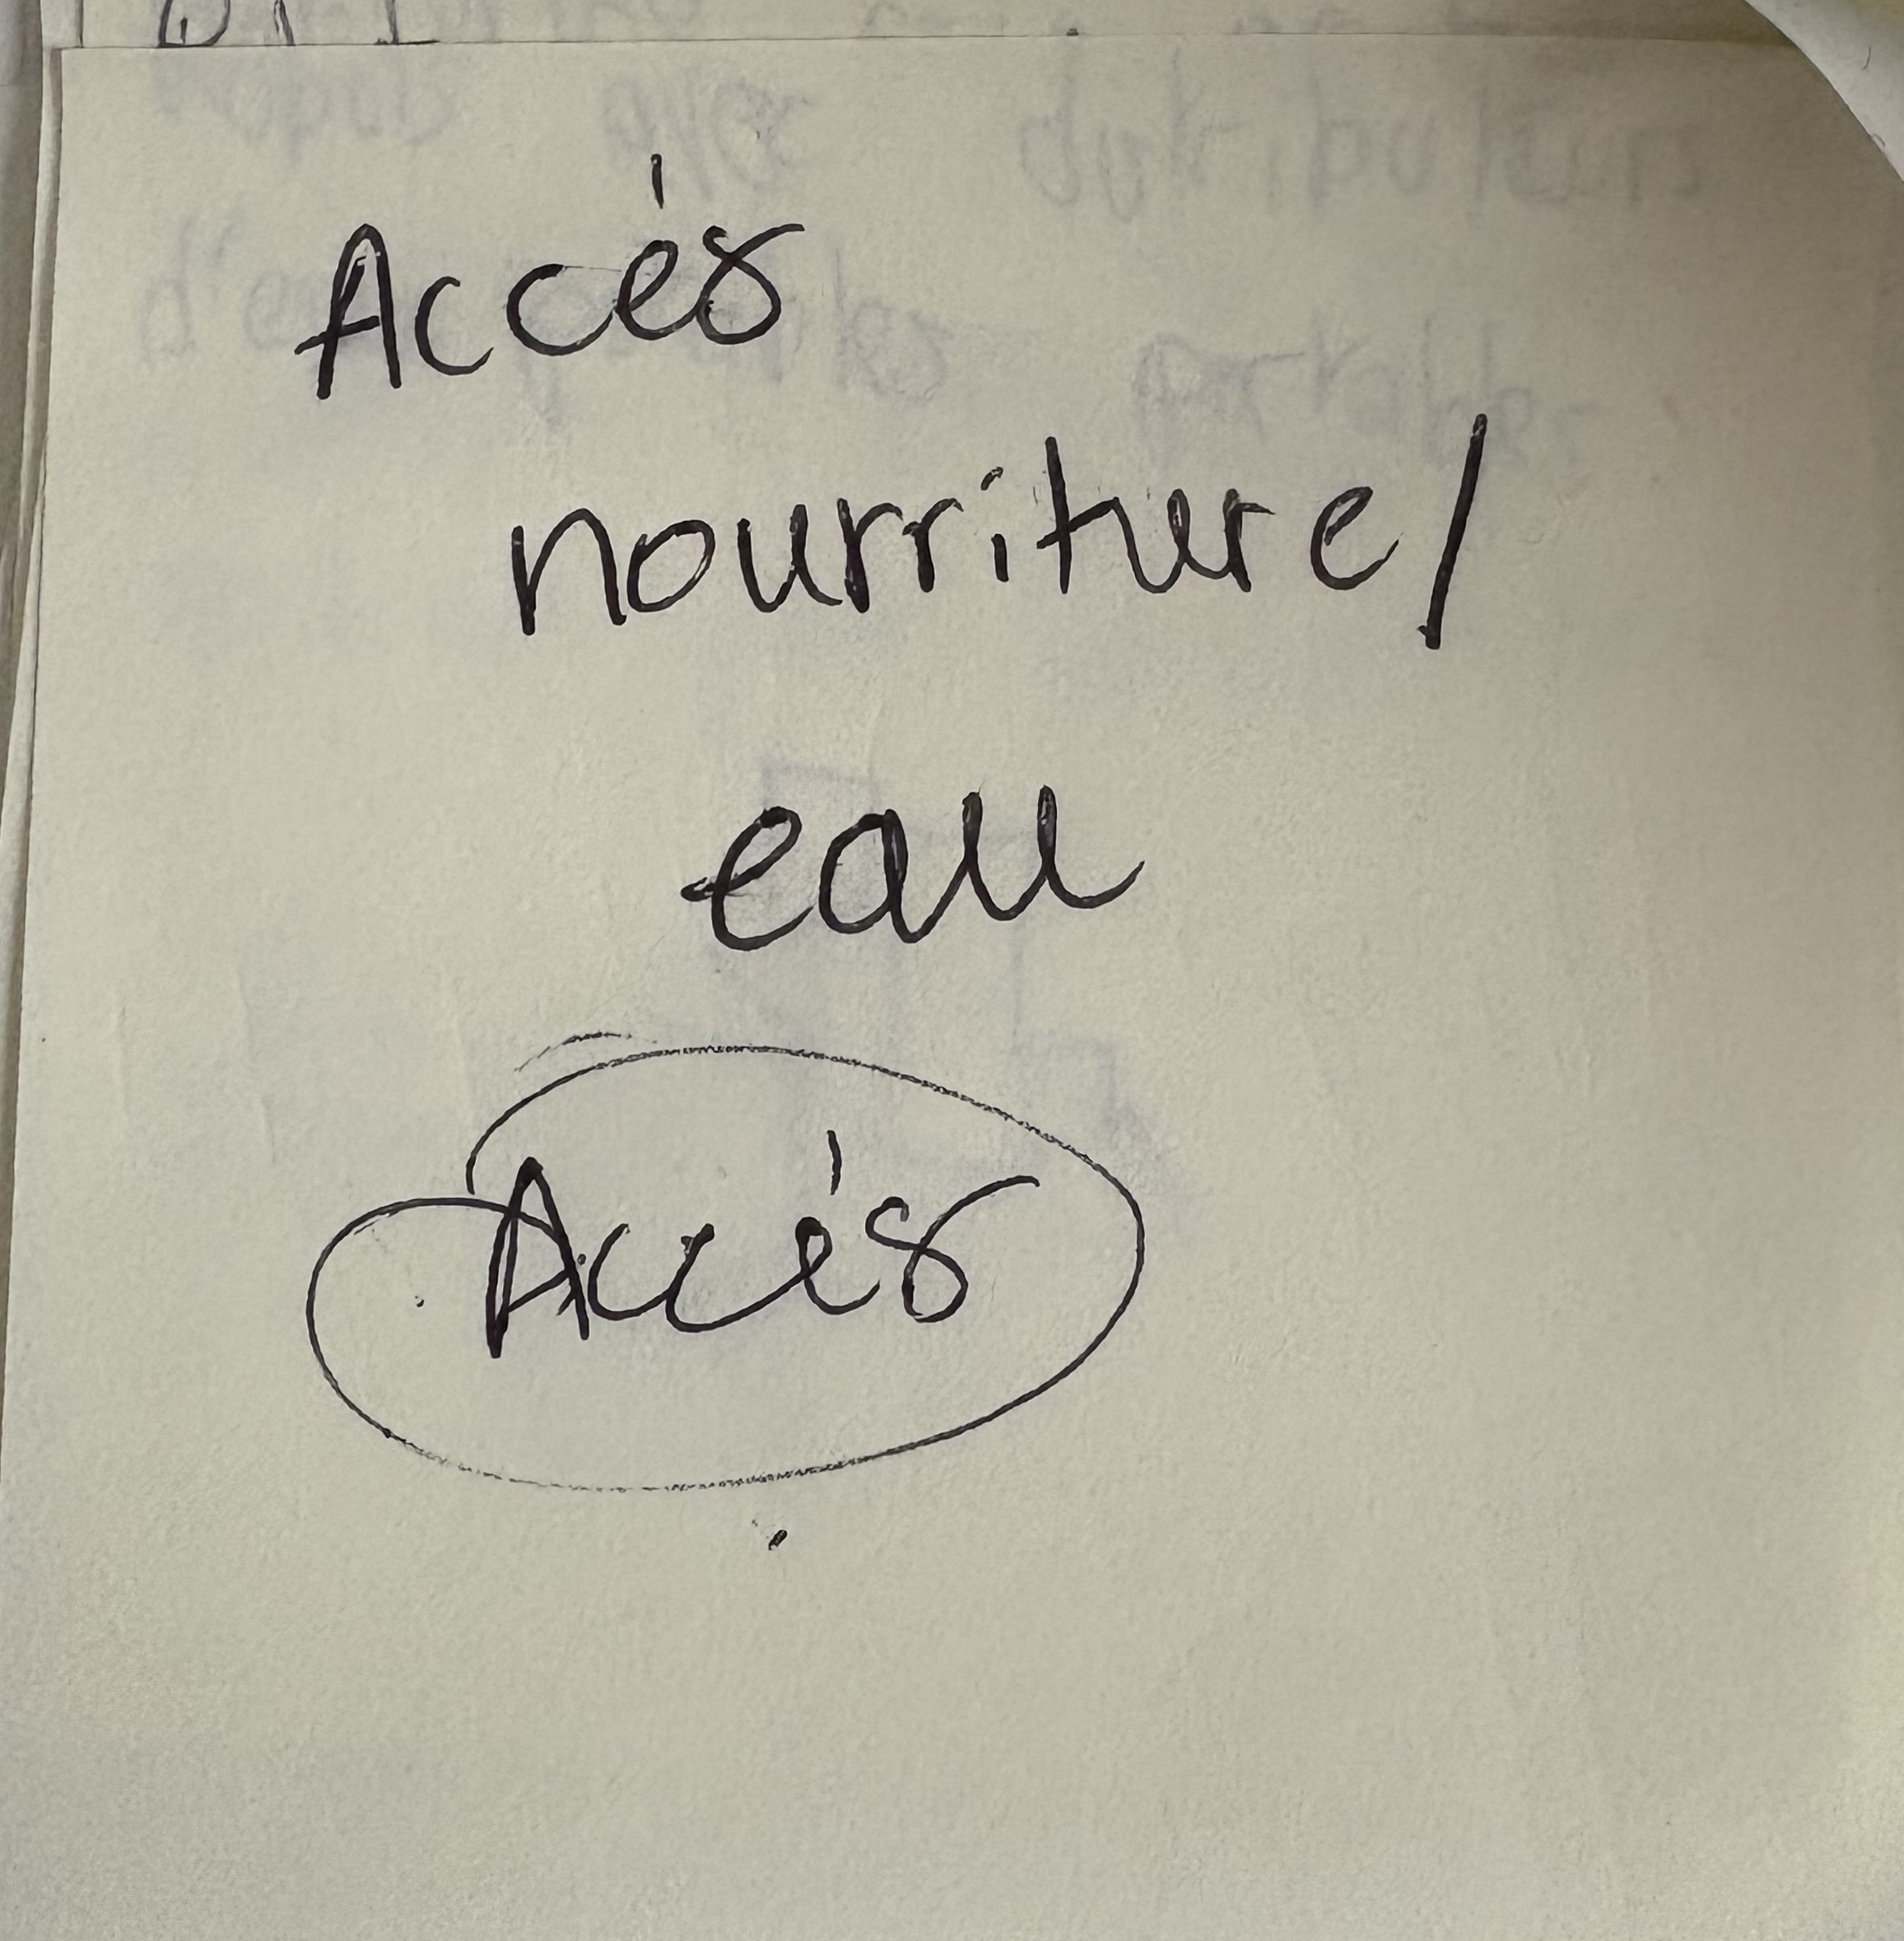 Accès
nourriture/
eau
Accès